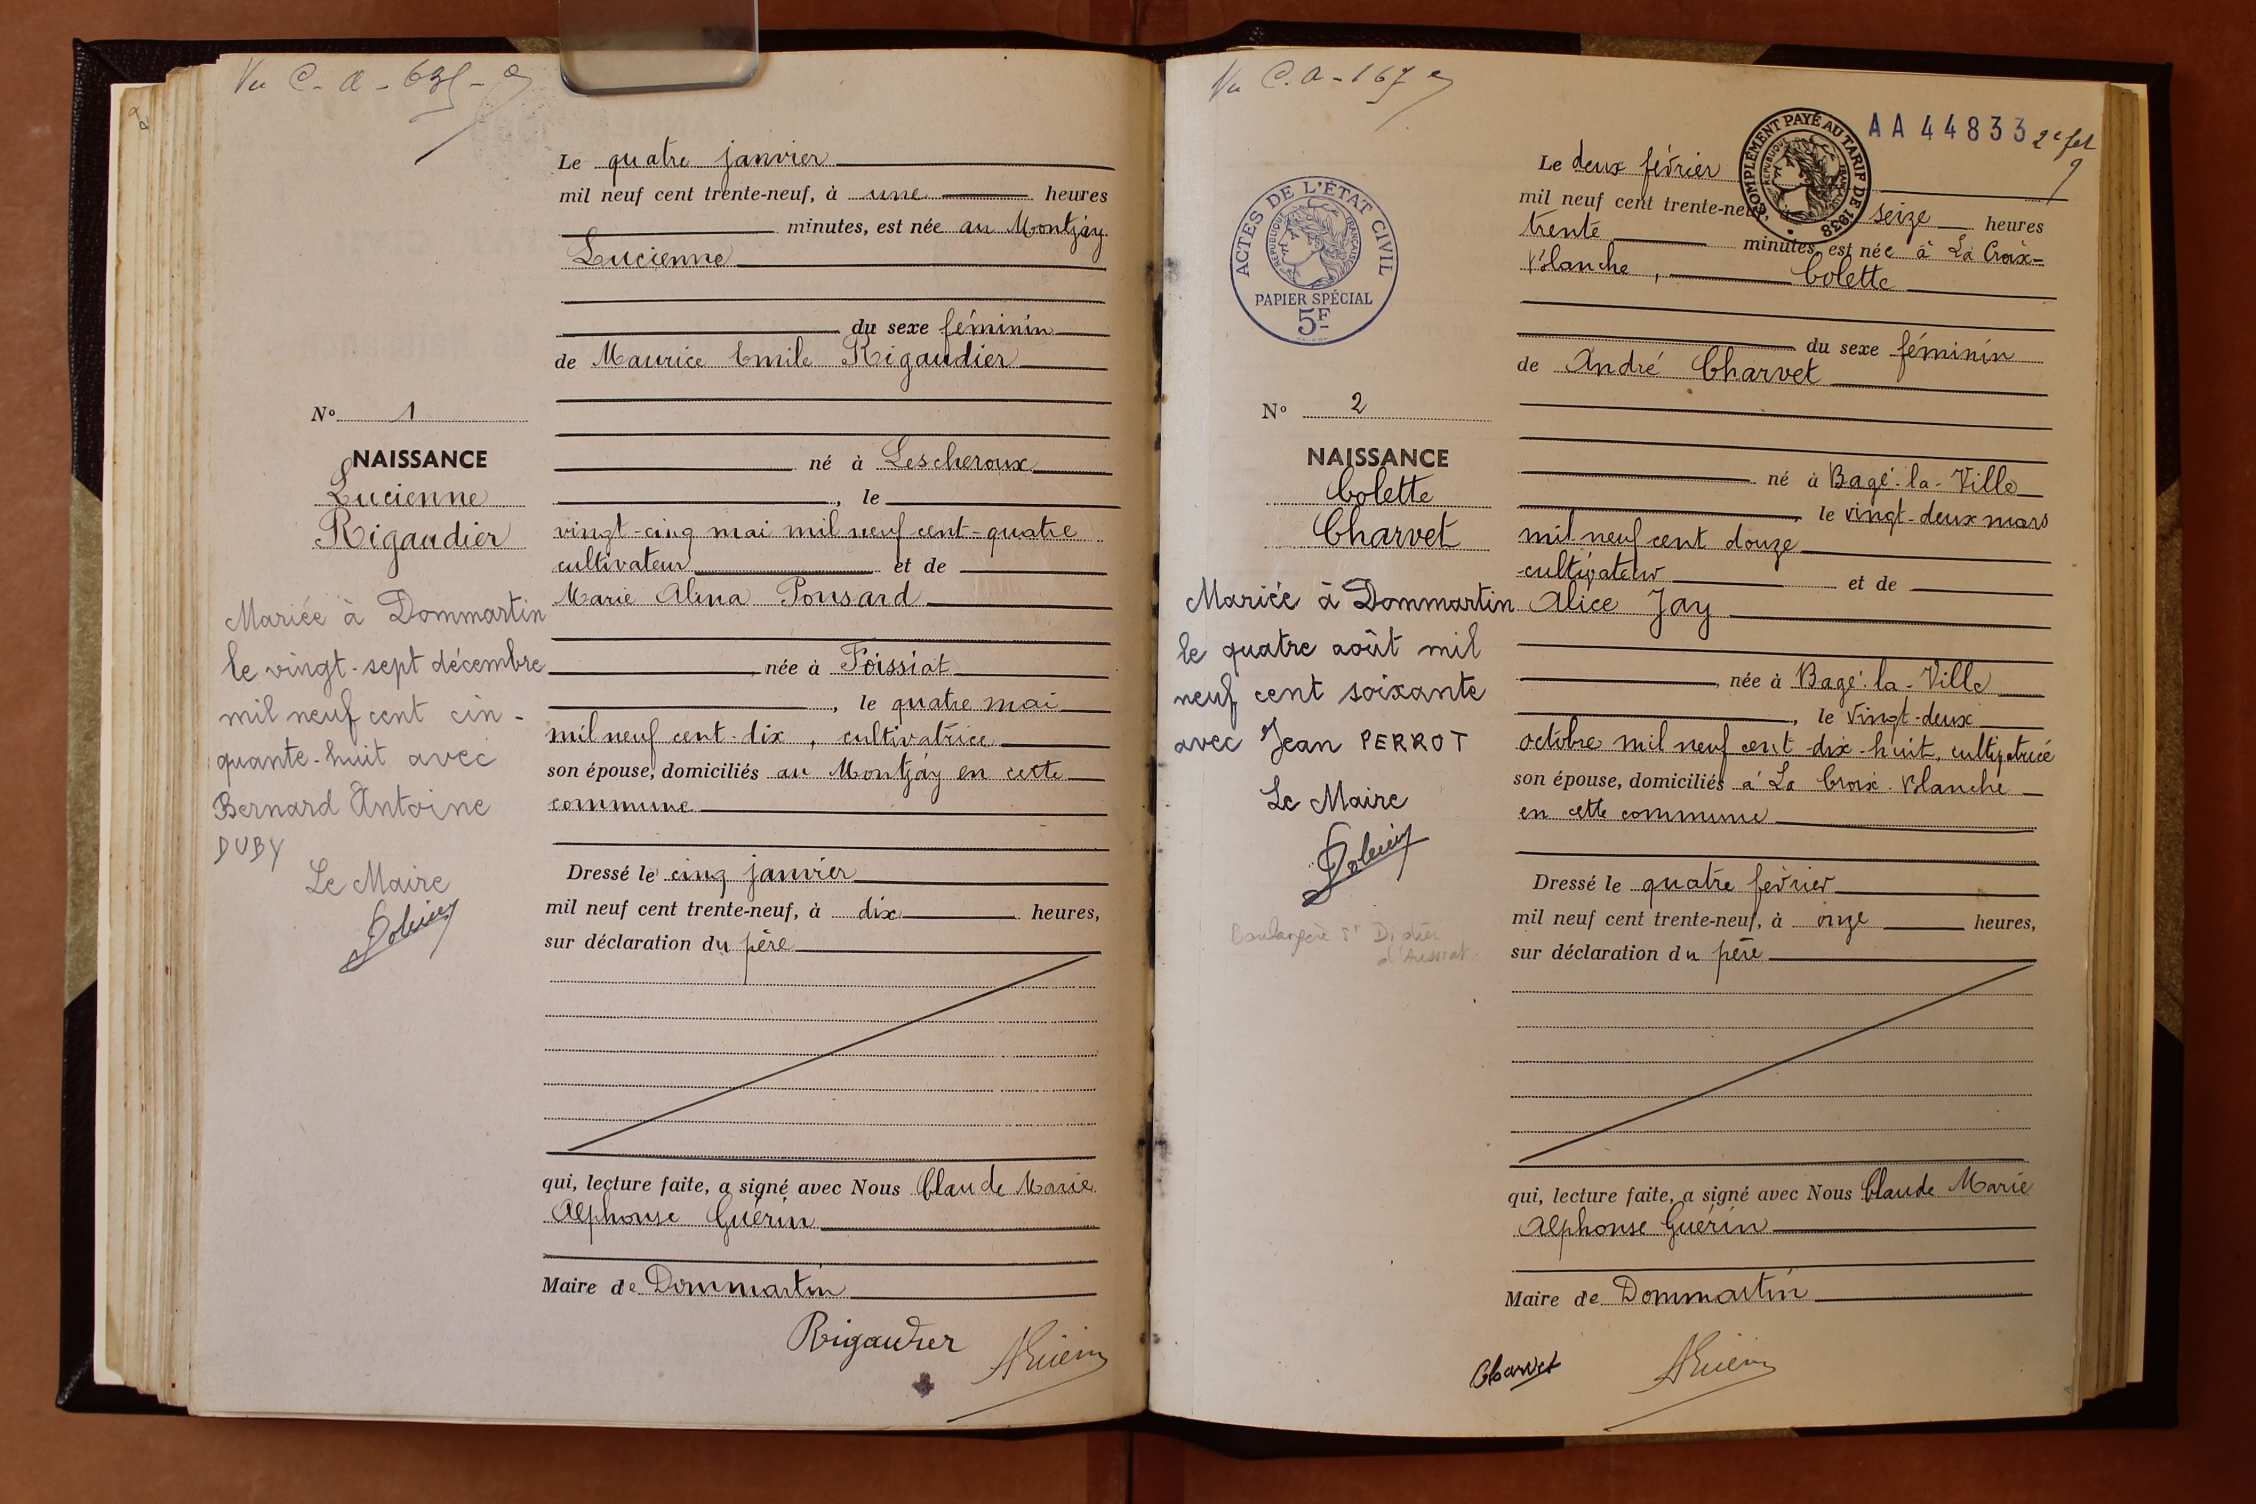 Vu C. A.
Le quatre janvier
mil neuf cent trente-neuf, à une heures
minutes, est née au Montjay
Lucienne
du sexe féminin
de Maurice Emile Rigaudier
N° 1
NAISSANCE
Lucienne
Rigaudier
né à Lescheroux
, le
vingt-cinq mai mil neuf cent-quatre
cultivateur et de
Marie Alina Ponsard
née à Foissiat
, le quatre mai
mil neuf cent-dix, cultivatrice
son épouse, domiciliés au Montjay en cette
commune
Mariée à Dommartin
le vingt-sept décembre
mil neuf cent cin-
quante-huit avec
Bernard Antoine
DUBY
Le Maire
Dressé le cinq janvier
mil neuf cent trente-neuf, à dix heures,
sur déclaration du père
qui, lecture faite, a signé avec Nous Claude Marie
Alphonse Guérin
Maire de Dommartin
Rigaudier
AGuérin
Vu C. A - 167
AA 44833
COMPLÉMENT PAYÉ AU TARIF DE 1938
RÉPUBLIQUE FRANÇAISE
ACTES DE L'ÉTAT CIVIL
RÉPUBLIQUE FRANÇAISE
PAPIER SPÉCIAL
5F
Le deux février
mil neuf cent trente-neuf, seize heures
trente minutes, est née à La Croix-
Blanche, Colette
du sexe féminin
de André Charvet
N° 2
NAISSANCE
Colette
Charvet
né à Bagé-la-Ville
le vingt-deux mars
mil neuf cent douze
cultivateur et de
Alice Jay
née à Bagé-la-Ville
, le vingt-deux
octobre mil neuf cent dix-huit, cultivatrice
son épouse, domiciliés à La Croix-Blanche
en cette commune
Mariée à Dommartin
le quatre août mil
neuf cent soixante
avec Jean PERROT
Le Maire
Boulangère St Didier
d'Aussiat
Dressé le quatre février
mil neuf cent trente-neuf, à onze heures,
sur déclaration du père
qui, lecture faite, a signé avec Nous Claude Marie
Alphonse Guérin
Maire de Dommartin
Charvet
AGuérin